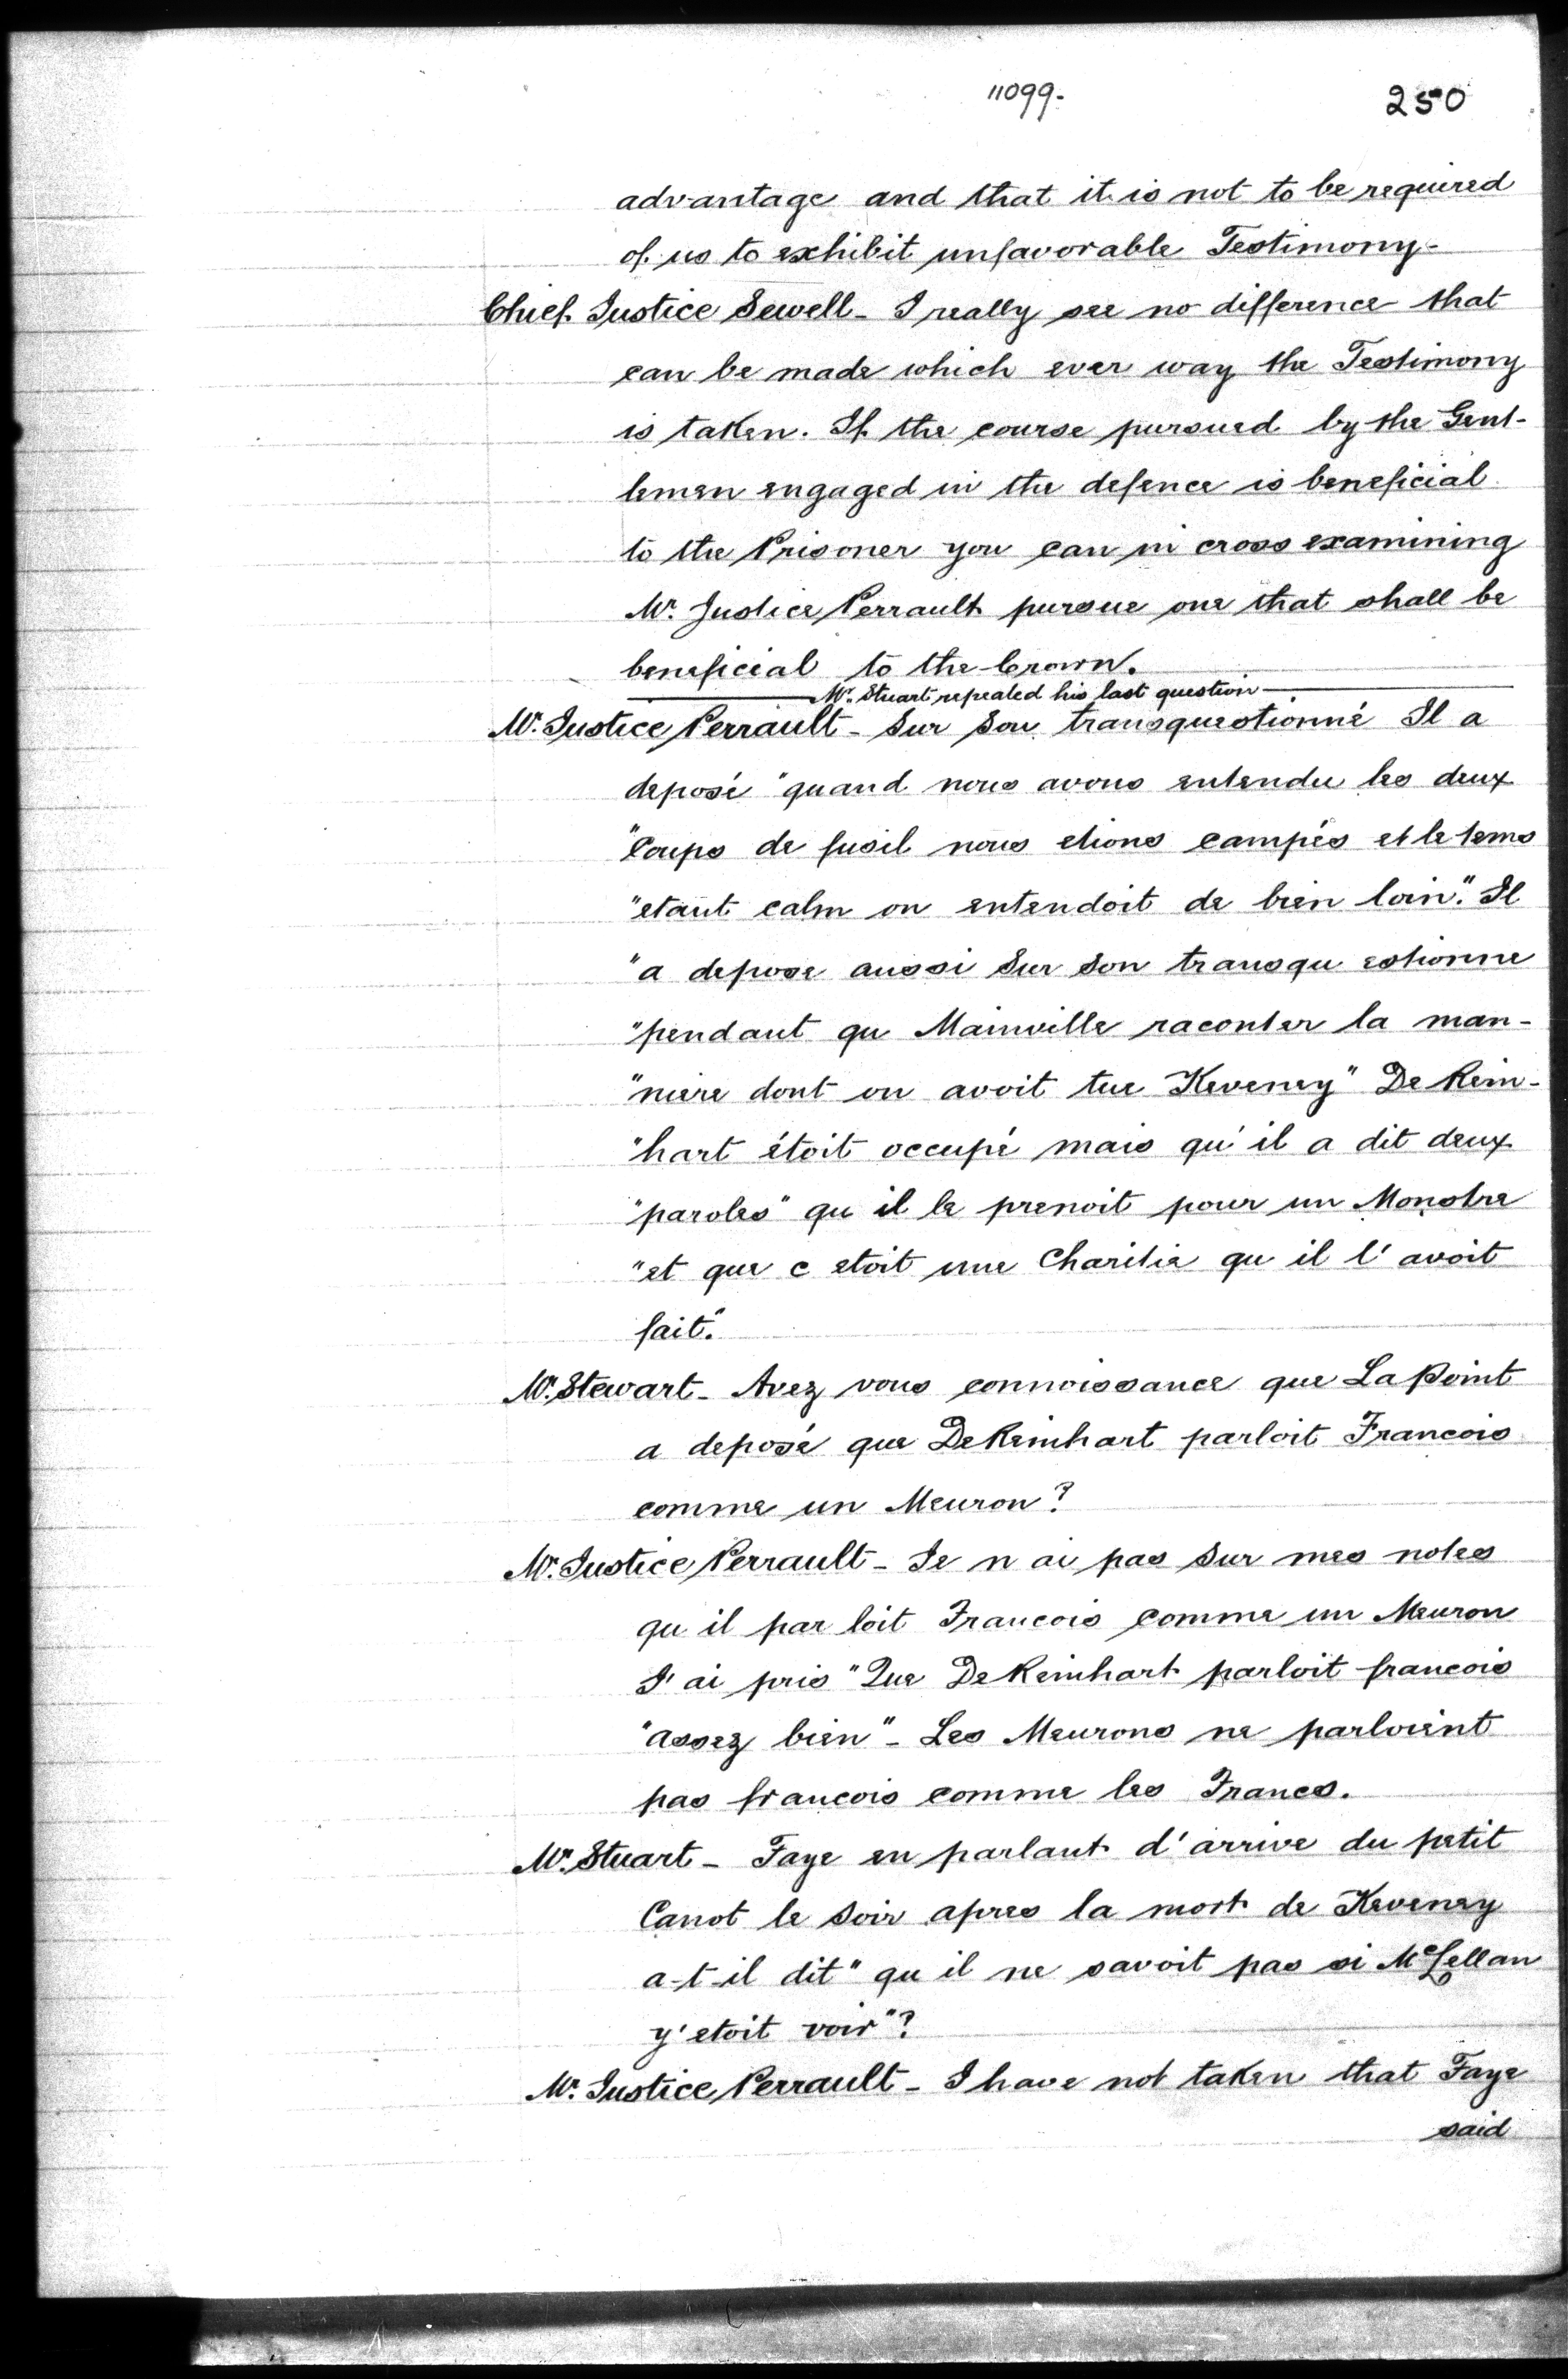 11099.
250
advantage and that it is not to be required
of us to exhibit unfavorable Testimony-
Chief Justice Sewell - I really see no difference that
can be made which ever way the Testimony
is taken. If the course pursued by the Gent-
lemen engaged in the defence is beneficial
to the Prisoner you can in cross examining
Mr. Justice Perrault pursue one that shall be
beneficial to the Crown.
Mr. Stuart repeated his last question
Mr. Justice Perrault - Sur Son transquestionné Il a
deposé "quand nous avons entendu les deux
"Coups de fusil nous etions campés et le tems
"etant calm on entendoit de bien loin". Il
"a depose aussi Sur Son transqu estionne
"pendant qu Mainville raconter la man-
"niere dont on avoit tue Keveney" De Rein-
"hart étoit occupé mais qu'il a dit deux
"paroles" qu il le prenoit pour un Monstre
"et que c etoit une Charitie qu il l'avoit
fait".
Mr. Stewart - Avez vous connoissance que La Point
a deposé que De Reinhart parloit Francois
comme un Meuron?
Mr. Justice Perrault - Je n ai pas Sur mes notes
qu il par loit Francois comme un Meuron
J'ai pris "Que De Reinhart parloit francois
"assez bien" - Les Meurons ne parloient
pas francois comme les Francs.
Mr. Stuart - Faye en parlant d'arrive du petit
Canot le Soir apres la mort de Keveney
a-t-il dit "qu il ne savoit pas si McLellan
y'etoit voir"?
Mr. Justice Perrault - I have not taken that Faye
said